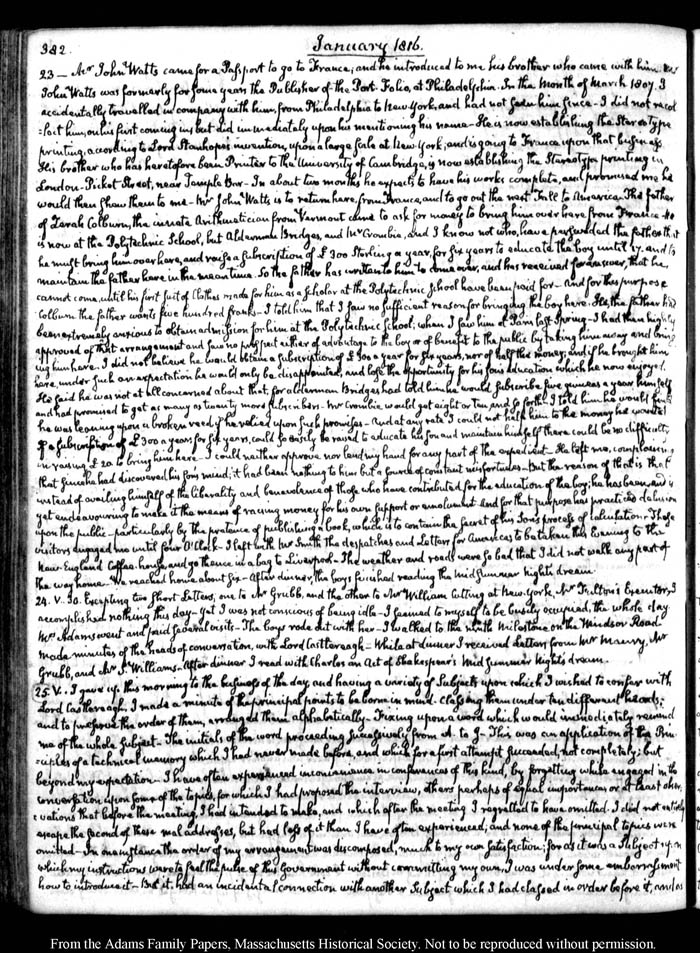 382.
January 1816.
23 — Mr John Watts came for a Passport to go to France; and he introduced to me his brother who came with him. Mr
John Watts was formerly for some years the Publisher of the Port-Folio, at Philadelphia. In the Month of March 1807. I
accidentally travelled in company with him, from Philadelphia to New York, and had not seen him since — I did not recol
=lect him, on his first coming in; but did immediately upon his mentioning his name — He is now establishing the Stereotype
printing, according to Lord Stanhope's invention, upon a large Scale at New York; and is going to France upon that business.
His brother who has heretofore been Printer to the University of Cambridge, is now establishing the Stereotype printing in
London — Picket Street, near Temple Bar — In about two months he expects to have his works complete, and promised me he
would then shew them to me — Mr John Watts is to return here, from France, and to go out the next Fall to America. The father
of Zerah Colburn, the innate Arithmetician from Vermont came to ask for money to bring him over here from France — He
is now at the Polytechnic School, but Alderman Bridges, and Mr Crombie, and I know not who, have persuaded the father that
he must bring him over here, and raise a subscription of £300 Sterling a year, for six years to educate the boy until 17. and to
maintain the father here in the mean time. So the father has written to him to come over, and has received for answer, that he
cannot come, until his first suit of Clothes made for him as a scholar at the Polytechnic School have been paid for — and for this purpose
Colburn the father wants five hundred francs — I told him that I saw no sufficient reason for bringing the boy here. He, the father had
been extremely anxious to obtain admission for him at the Polytechnic School; when I saw him at Paris last Spring — I had then highly
approved of that arrangement and saw no prospect either of advantage to the boy or of benefit to the public by taking him away and bring
ing him here. I did not believe he would obtain a subscription of £300 a year for six years, nor of half this money; and if he brought him
here, under such an expectation he would only be disappointed, and lose the opportunity for his son's education which he now enjoyed.
He said he was not at all concerned about that, for Alderman Bridges had told him he would subscribe five guineas a year himself
and had promised to get as many as twenty more subscribers — Mr Crombie would get eight or ten and so forth. I told him he would find
he was leaning upon a broken reed if he relied upon such promises — and at any rate I could not help him to the money he wanted
If a subscription of £300 a year for six years, could so easily be raised to educate his son and maintain himself there could be no difficulty
in raising £20 to bring him here — I could neither approve nor lend my hand for any part of the expedient — He left me, complaining
that since he had discovered his son's mind, it had been nothing to him but a source of constant misfortunes — But the reason of that is that
instead of availing himself of the liberality and benevolence of those who have contributed for the education of the boy, he has been, and is
yet endeavouring to make it the means of raising money for his own support or emolument and for that purpose has practiced delusion
upon the public — particularly by the pretence of publishing a book, which is to contain the secret of his Son's process of calculation — These
visitors engaged me until four O'Clock — I left with Mr Smith the despatches and Letters for America to be taken this Evening to the
New-England Coffee-house, and go thence in a bag to Liverpool — The weather and roads were so bad that I did not walk any part of
the way home. We reached home about six — After dinner, the boys finished reading the Midsummer night's dream.
24. V. 30. Excepting two short Letters, one to Mr Grubb, and the other to Mr William Cutting at New York, Mr Fulton's Executor, I
accomplished nothing this day — yet I was not conscious of being idle — I seemed to myself to be busily occupied, the whole day
Mrs Adams went and paid several visits — The boys rode out with her — I walked to the ninth Milestone on the Windsor Road
made minutes of the heads of conversation, with Lord Castlereagh — While at dinner I received Letters from Mr Maury, Mr
Grubb, and Mr S. Williams — After dinner I read with Charles an Act of Shakespear's Midsummer Night's dream.
25. V. I gave up this morning to the business of the day, and having a variety of Subjects upon which I wished to confer with
Lord Castlereagh, I made a minute of the principal points to be borne in mind — Classing them under ten different heads;
and to preserve the order of them, arranged them alphabetically — Fixing upon a word which would immediately remind
me of the whole subject — The initials of the word proceeding successively from A. to J — This was an application of the Prin
=ciples of a technical memory which I had never made before, and which for a first attempt succeeded, not completely; but
beyond my expectation — I have often experienced inconvenience in conferences of this kind, by forgetting while engaged in the
conversation upon some of the topics, for which I had proposed the interview, others perhaps of equal importance; or at least obser
=vations that before the meeting, I had intended to make, and which after the meeting I regretted to have omitted. I did not entirely
escape the second of these mal addresses, but had less of it than I have often experienced, and none of the principal topics were
omitted — In one instance the order of my arrangement was discomposed, much to my own satisfaction; for as it was a subject upon
which my instructions were to feel the pulse of this Government without committing my own, I was under some embarrassment
how to introduce it — But it had an incidental connection with another Subject which I had classed in order before it, and as
From the Adams Family Papers, Massachusetts Historical Society. Not to be reproduced without permission.